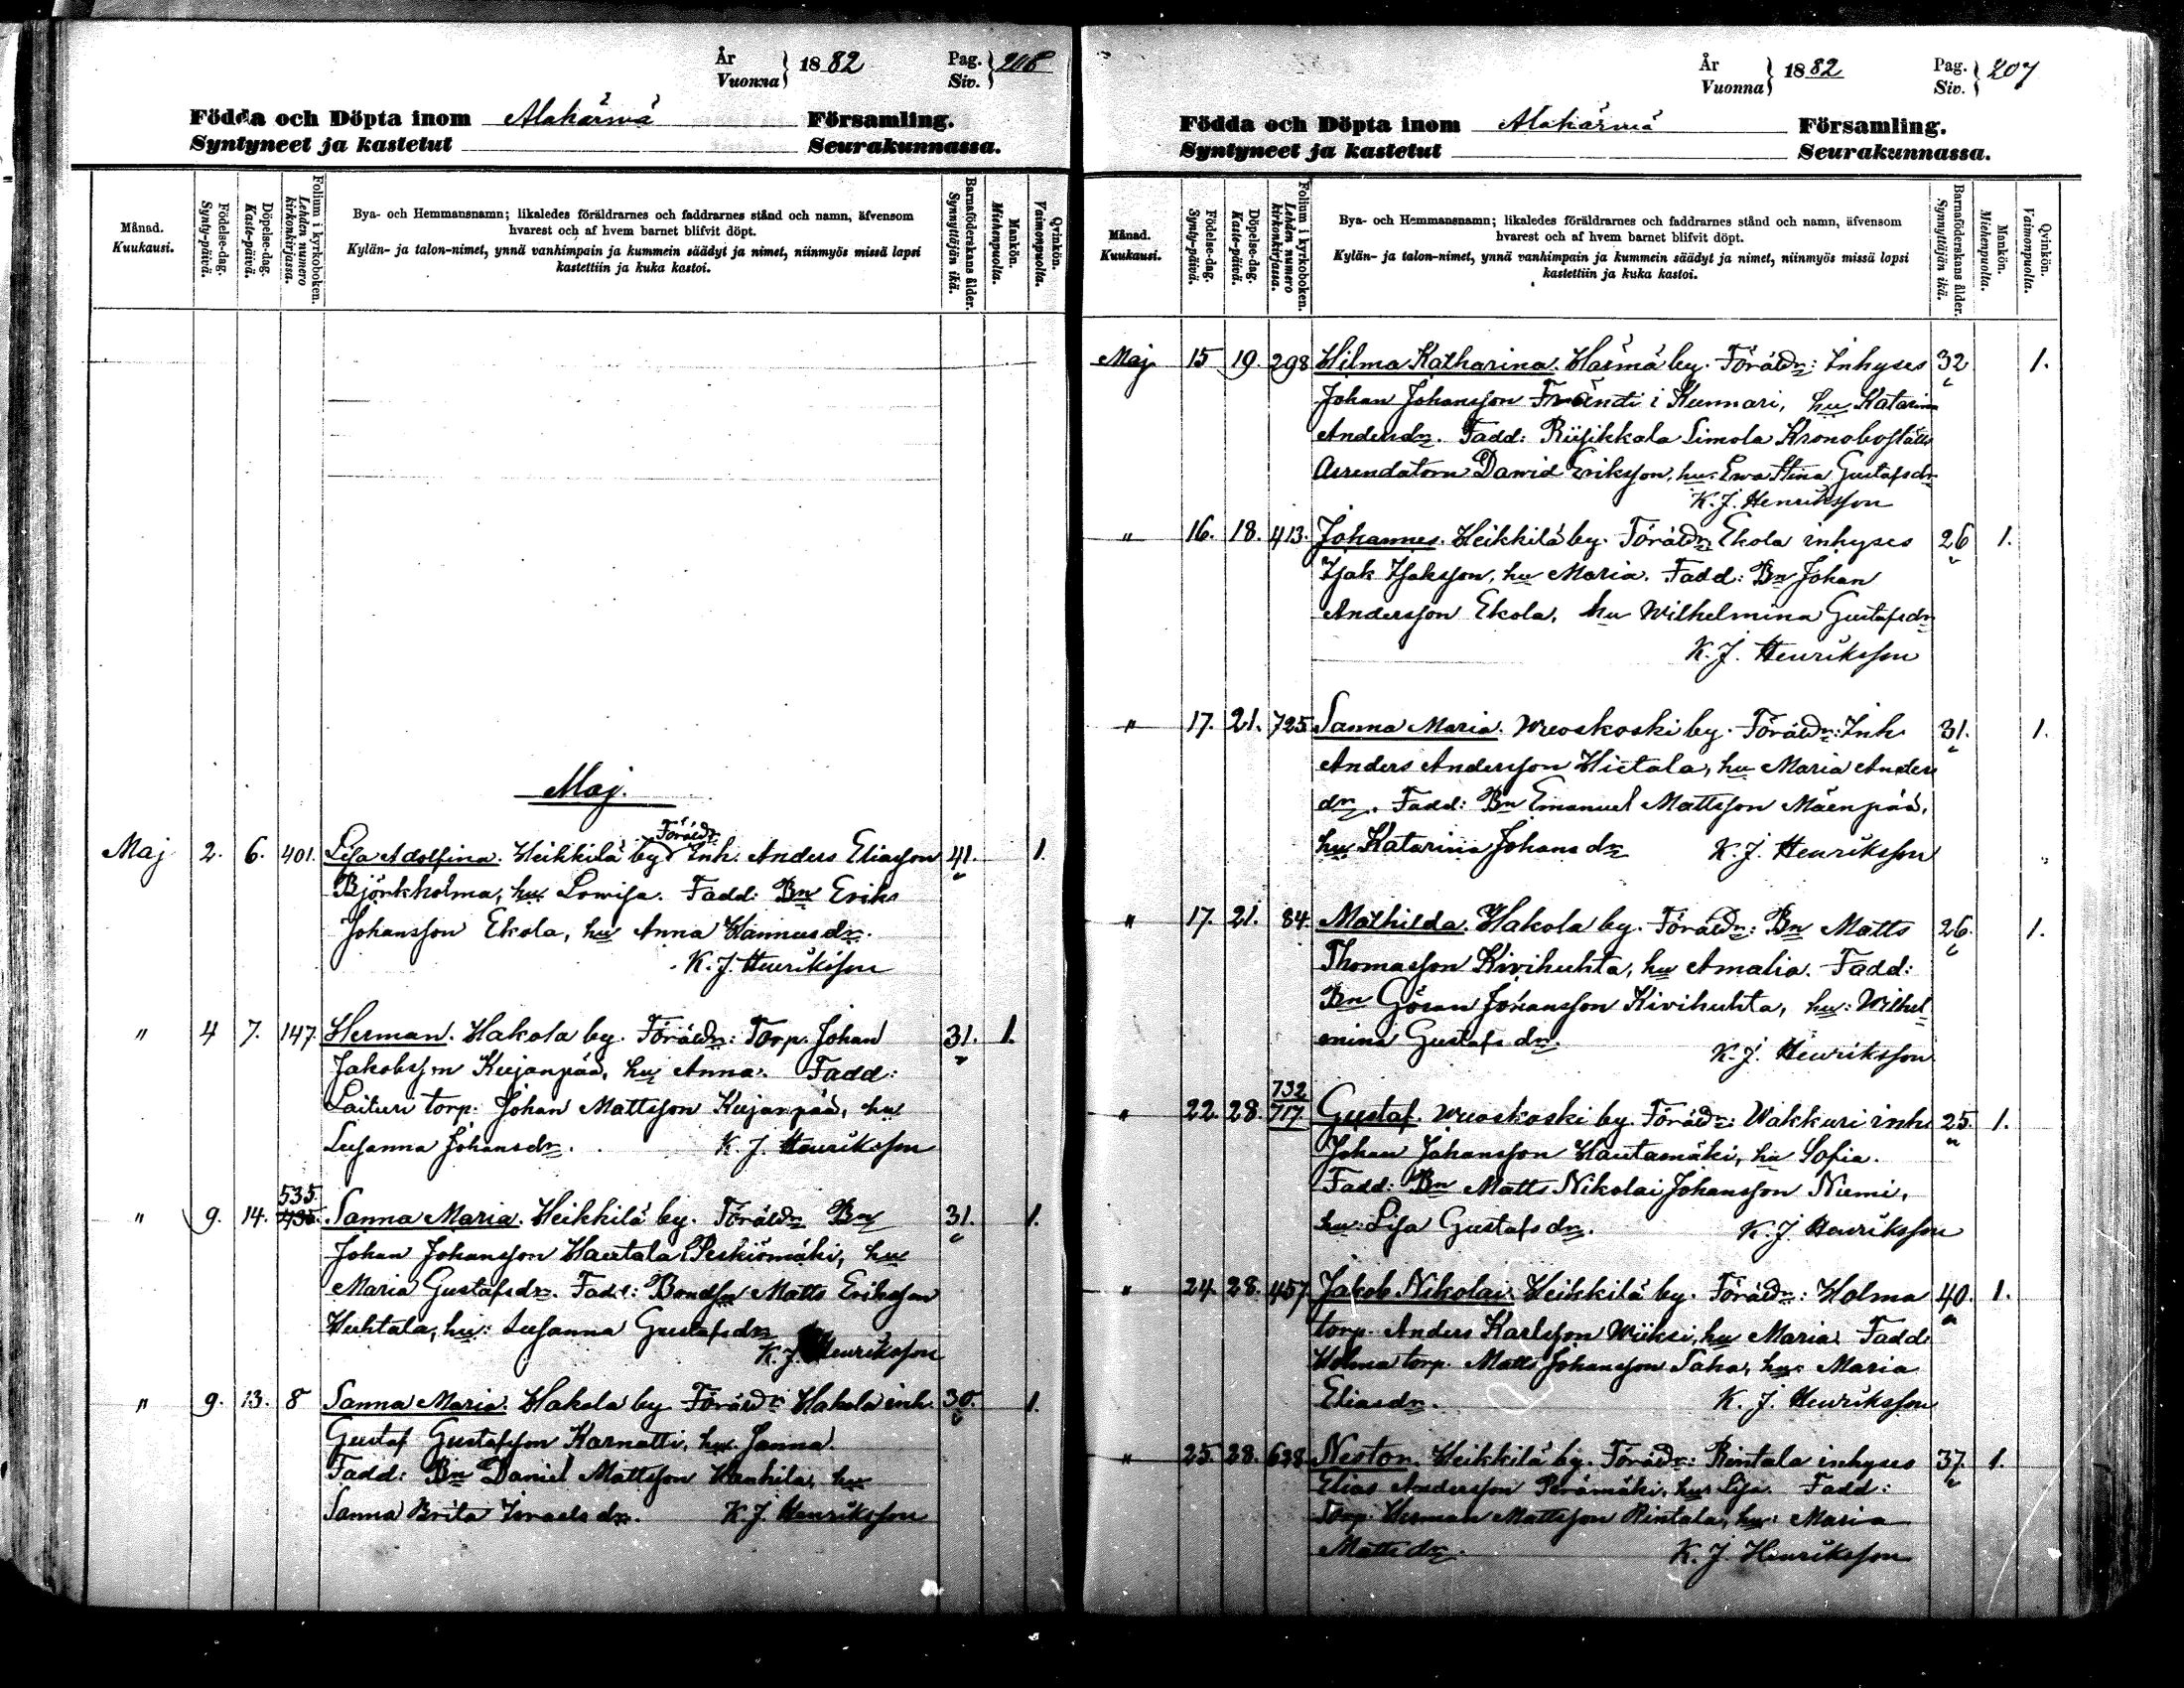 År
Vuonna } 1882 Pag.
Siv. }
Födda och Döpta inom Alahärmä Församling.
Syntyneet ja kastetut Seurakunnassa.
Månad.
Kuukausi.
Födelse-dag.
Synty-päivä.
Döpelse-dag.
Kaste-päivä.
Folium i kyrkoboken.
Lehden numero
kirkonkirjassa.
Bya- och Hemmansnamn; likaledes föräldrarnes och faddrarnes stånd och namn, äfvensom
hvarest och af hvem barnet blifvit döpt.
Kylän- ja talon-nimet, ynnä vanhimpain ja kummein säädyt ja nimet, niinmyös missä lapsi
kastettiin ja kuka kastoi.
Barnaföderskans ålder.
Synnyttäjän ikä.
Mankön.
Miehenpuolta.
Qvinkön.
Vaimonpuolta.
Maj.
Maj 2. 6. 401. Lisa Adolfina. Heikkilä by Föräldr: Inh. Anders Eliasson 41. 1.
Björkholma, hu Lovisa. Fadd: Bn Erik
Johansson Ekola, hu Anna Hannusdr.
K. J. Henriksson
" 4 7. 147. Herman. Hakola by. Föräldr: Torp. Johan 31. 1.
Jakobsson Kujanpää, hu Anna. Fadd:
Laituri torp: Johan Mattsson Kujanpää, hu
Susanna Johansdr. K. J. Henriksson
535.
" 9. 14. 435. Sanna Maria. Heikkilä by. Föräldr Bn 31. 1.
Johan Johansson Hautala, hu
Maria Gustafsdr. Fadd: Bondsn Matts Eriksson
Huhtala, hu: Susanna Gustafsdr
K. J. Henriksson
" 9. 13. 8 Sanna Maria. Hakola by Föräldr: Hakola inh. 30. 1.
Gustaf Gustafsson Karnatti, hu Sanna.
Fadd: Bn Daniel Mattsson Hanhila, hu
Sanna Brita Israelsdr. K. J. Henriksson
År
Vuonna } 1882 Pag.
Siv. } 207
Födda och Döpta inom Alahärmä Församling.
Syntyneet ja kastetut Seurakunnassa.
Månad.
Kuukausi.
Födelse-dag.
Synty-päivä.
Döpelse-dag.
Kaste-päivä.
Folium i kyrkoboken.
Lehden numero
kirkonkirjassa.
Bya- och Hemmansnamn; likaledes föräldrarnes och faddrarnes stånd och namn, äfvensom
hvarest och af hvem barnet blifvit döpt.
Kylän- ja talon-nimet, ynnä vanhimpain ja kummein säädyt ja nimet, niinmyös missä lapsi
kastettiin ja kuka kastoi.
Barnaföderskans ålder.
Synnyttäjän ikä.
Mankön.
Miehenpuolta.
Qvinkön.
Vaimonpuolta.
Maj 15 19. 298 Hilma Katharina. Härmä by. Föräldr: Inhyses 32 1.
Johan Johansson Frändi i Kunnari, hu Katarina
Andersdr. Fadd: Limola Kronoboställs
Arrendatorn David Eriksson, hu: Ewa Stina Gustafsdr
K. J. Henriksson
" 16. 18. 413. Johannes. Heikkilä by. Föräldr Ekola inhyses 26 1.
Isak Isaksson, hu Maria. Fadd: Bn Johan
Andersson Ekola, hu Wilhelmina Gustafsdr
K. J. Henriksson
" 17. 21. 725 Sanna Maria. Wuoskoski by. Föräldr: Inh. 31. 1.
Anders Andersson Hietala, hu Maria Anders
dr. Fadd: Bn Emanuel Mattsson Mäenpää,
hu Katarina Johansdr K. J. Henriksson
" 17. 21. 84. Mathilda. Hakola by. Föräldr: Bn Matts 26. 1.
Thomasson Kivihuhta, hu Amalia. Fadd:
Bn Göran Johansson Kivihuhta, hu: Wilhel
mina Gustafsdr. K. J. Henriksson
732
" 22. 28. 717. Gustaf. Wuoskoski by. Föräldr: Wakkuri inh. 25. 1.
Johan Johansson Hautamäki, hu Sofia.
Fadd: Bn Matts Nikolai Johansson Niemi,
hu: Lisa Gustafsdr. K. J. Henriksson
" 24. 28. 457. Jakob Nikolai. Heikkilä by. Föräldr: Holma 40. 1.
torp. Anders Karlsson Wiiksi, hu Maria. Fadd:
Holma torp. Matts Johansson Saha, hu: Maria
Eliasdr. K. J. Henriksson
" 25. 28. 628 Nestor. Heikkilä by. Föräldr: Rintala inhyses 37. 1.
Elias Andersson Perämäki, hu: Lisa. Fadd:
Torp: Herman Mattsson Rintala, hu: Maria
Mattsdr. K. J. Henriksson